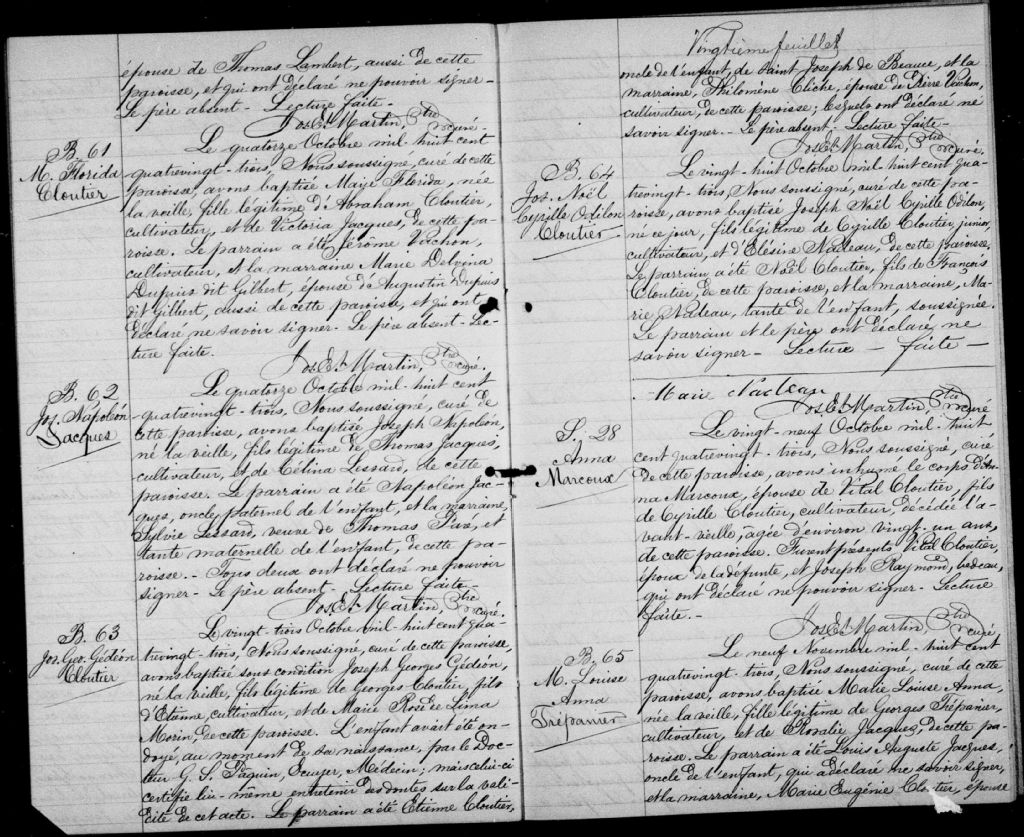 épouse de Thomas Lambert, aussi de cette
paroisse, et qui ont déclaré ne pouvoir signer -
Le père absent - Lecture faite -
Jos. Et. Martin, Ptre
curé.
B. 61
M. Florida
Cloutier
Le quatorze Octobre mil-huit cent
quatrevingt-trois, Nous soussigné, curé de cette
paroisse, avons baptisé Marie Florida, née
la veille, fille légitime d'Abraham Cloutier,
cultivateur, et de Victoria Jacques, de cette pa-
roisse. Le parrain a été Jérôme Vachon,
cultivateur, et la marraine Marie Delvina
Dupuis dit Gilbert, épouse d'Augustin Dupuis
dit Gilbert, aussi de cette paroisse, et qui ont
déclaré ne savoir signer - Le père absent - Lec-
ture faite.
Jos. Et. Martin, Ptre
curé.
B. 62
Jos. Napoléon
Jacques
Le quatorze Octobre mil-huit cent
quatrevingt-trois, Nous soussigné, curé de
cette paroisse, avons baptisé Joseph Napoléon,
né la veille, fils légitime de Thomas Jacques,
cultivateur, et de Célina Lessard, de cette
paroisse. Le parrain a été Napoléon Jac-
ques, oncle paternel de l'enfant, et la marraine,
Sylvie Lessard, veuve de Thomas et
tante maternelle de l'enfant, de cette pa-
roisse. - Tous deux ont déclaré ne pouvoir
signer - Le père absent - Lecture faite -
Jos. Et. Martin, Ptre
curé.
B. 63
Jos. Geo. Gédéon
Cloutier
Le vingt-trois Octobre mil-huit cent qua-
trevingt-trois, Nous soussigné, curé de cette paroisse,
avons baptisé sous condition Joseph Georges Gédéon,
né la veille, fils légitime de Georges Cloutier, fils
d'Etienne, cultivateur, et de Marie Rose de Lima
Morin, de cette paroisse. L'enfant avait été on-
doyé, au moment de sa naissance, par le Doc-
teur G. S. Paquin, Ecuyer, Médecin; mais celui-ci
certifie lui-même entretenir des doutes sur la vali-
dité de cet acte. Le parrain a été Etienne Cloutier,
Vingtième feuillet
oncle de l'enfant, de Saint Joseph de Beauce, et la
marraine, Philomène Cliche, épouse de Pierre Vachon,
cultivateur, de cette paroisse; lesquels ont déclaré ne
savoir signer - Le père absent - Lecture faite -
Jos. Et. Martin, Ptre
curé.
B. 64
Jos. Noël
Cyrille Odilon
Cloutier
Le vingt-huit Octobre mil huit cent qua-
trevingt-trois, Nous soussigné, curé de cette pa-
roisse, avons baptisé Joseph Noël Cyrille Odilon,
né ce jour, fils légitime de Cyrille Cloutier, junior,
cultivateur, et d'Elésire Nadeau, de cette paroisse.
Le parrain a été Noël Cloutier, fils de François
Cloutier, de cette paroisse, et la marraine, Ma-
rie Nadeau, tante de l'enfant, soussignée.
Le parrain et le père ont déclaré ne
savoir signer - Lecture - faite -
Marie Nadeau
Jos. Et. Martin, Ptre
curé
S. 28
Anna
Marcoux
Le vingt-neuf Octobre mil-huit
cent quatrevingt-trois, Nous soussigné, curé
de cette paroisse, avons inhumé le corps d'An-
na Marcoux, épouse de Vital Cloutier, fils
de Cyrille Cloutier, cultivateur, décédée l'a-
vant-veille, agée d'environ vingt-un ans,
de cette paroisse. Furent présents Vital Cloutier,
époux de la défunte, et Joseph Raymond, bedeau,
qui ont déclaré ne pouvoir signer - Lecture
faite. -
Jos. Et. Martin, Ptre
curé
B. 65
M. Louise
Anna
Trépanier
Le neuf Novembre mil-huit cent
quatrevingt-trois, Nous soussigné, curé de cette
paroisse, avons baptisé Marie Louise Anna,
née la veille, fille légitime de Georges Trépanier,
cultivateur, et de Rosalie Jacques, de cette pa-
roisse. Le parrain a été Louis Auguste Jacques,
oncle de l'enfant, qui a déclaré ne savoir signer,
et la marraine, Marie Eugénie Cloutier, épouse